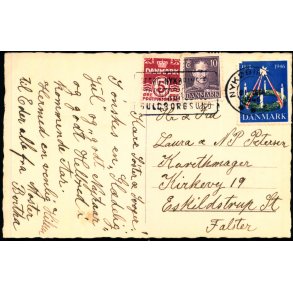 Kære Søster og Svoger!
Ønskes en Glædelig
Jul, og godt Nytaar
og godt Helbred i
kommende Aar.
Hermed en venlig Hilsen
til Eder alle fra Søster
Bertha
DANMARK
5
10
DANMARK
GULDBORGSUND
NYKØB
1946
DANMARK
Hr og Fru
Laura & N P Petersen
Kunstmager
Kirkevej 19
Eskildstrup St
Falster